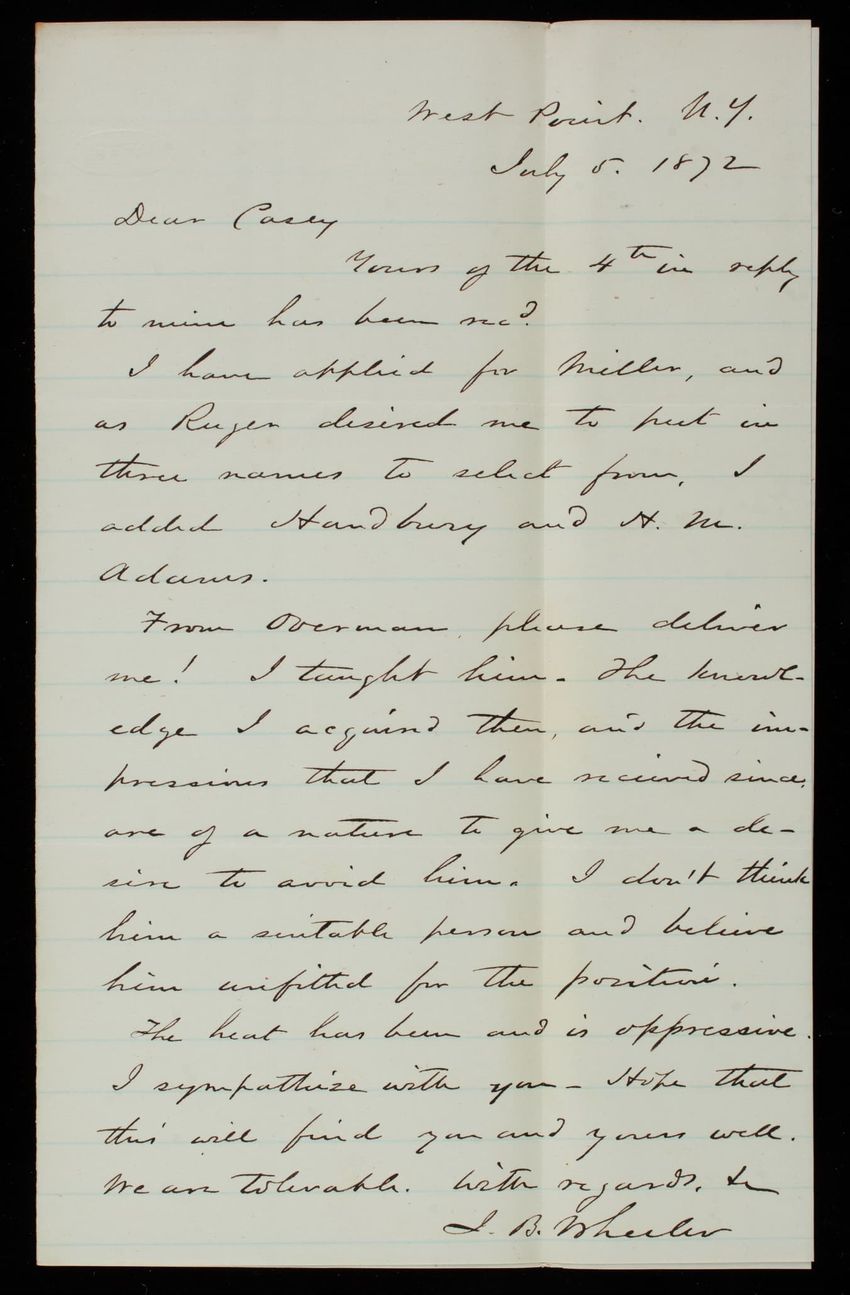 West Point. N.Y.
July 5. 1872
Dear Casey
Yours of the 4th in reply
to mine has been recd.
I have applied for Miller, and
as Ruger desired me to put in
three names to select from, I
added Handbury and H. M.
Adams.
From Overman, please deliver
me! I taught him. The knowl-
edge I acquired then, and the im-
pressions that I have recieved since,
are of a nature to give me a de-
sire to avoid him. I don't think
him a suitable person and believe
him unfitted for the position.
The heat has been and is oppressive.
I sympathize with you - Hope that
this will find you and yours well.
We are tolerable. With regards, &c
J. B. Wheeler